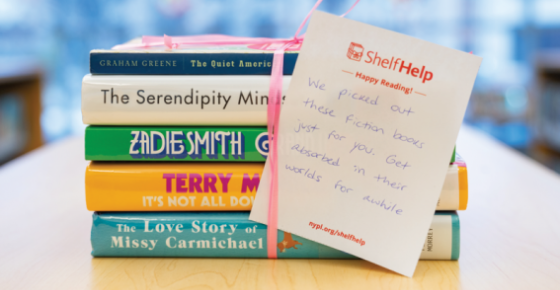 GRAHAM GREENE The Quiet Americ
The Serendipity Minds
ZADIE SMITH G
TERRY M
IT'S NOT ALL DOW
The Love Story of
Missy Carmichael
ShelfHelp
Happy Reading!
We picked out
these fiction books
just for you. Get
absorbed in their
worlds for awhile
nypl.org/shelfhelp